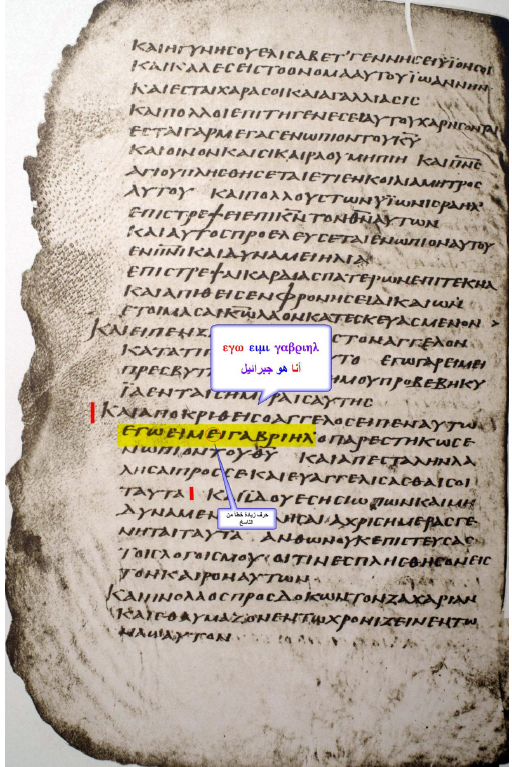 ΚΑΙΗΓΥΝΗϹΟΥΕΛΙϹΑΒΕΤ'ΓΕΝΝΗϹΕΙΫΪΟΝϹΟΙ
ΚΑΙΚΑΛΕϹΕΙϹΤΟΟΝΟΜΑΑΥΤΟΥΪΩΑΝΝΗΝ
ΚΑΙΕϹΤΑΙΧΑΡΑϹΟΙΚΑΙΑΓΑΛΛΙΑϹΙϹ
ΚΑΙΠΟΛΛΟΙΕΠΙΤΗΓΕΝΕϹΕΙΑΥΤΟΥΧΑΡΗϹΟΝΤΑΙ
ΕϹΤΑΙΓΑΡΜΕΓΑϹΕΝΩΠΙΟΝΤΟΥΚ̅Υ̅
ΚΑΙΟΙΝΟΝΚΑΙϹΙΚΑΙΡΑΟΥΜΗΠΙΗ ΚΑΙΠ̅Ν̅Ϲ̅
ΑΓΙΟΥΠΛΗϹΘΗϹΕΤΑΙΕΤΙΕΝΚΟΙΛΙΑΜΗΤΡΟϹ
ΑΥΤΟΥ ΚΑΙΠΟΛΛΟΥϹΤΩΝΥΪΩΝΙϹΡΑΗΛ
ΕΠΙϹΤΡΕΨΕΙΕΠΙΚ̅Ν̅ΤΟΝΘ̅Ν̅ΑΥΤΩΝ
ΚΑΙΑΥΤΟϹΠΡΟΕΛΕΥϹΕΤΑΙΕΝΩΠΙΟΝΑΥΤΟΥ
ΕΝΠ̅Ν̅Ι̅ΚΑΙΔΥΝΑΜΕΙΗΛΙΑ
ΕΠΙϹΤΡΕΨΑΙΚΑΡΔΙΑϹΠΑΤΕΡΩΝΕΠΙΤΕΚΝΑ
ΚΑΙΑΠΙΘΕΙϹΕΝΦΡΟΝΗϹΕΙΔΙΚΑΙΩΝ
ΕΤΟΙΜΑϹΑΙΚ̅Ω̅ΛΑΟΝΚΑΤΕϹΚΕΥΑϹΜΕΝΟΝ
ΚΑΙΕΙΠΕΝΖΑ ϹΤΟΝΑΓΓΕΛΟΝ
ΚΑΤΑΤΙ ΤΟ ΕΓΩΓΑΡΕΙΜΕΙ
ΠΡΕϹΒΥΤ ΜΟΥΠΡΟΒΕΒΗΚΥ
ΪΑΕΝΤΑΙϹΗΜΕΡΑΙϹΑΥΤΗϹ
εγω ειμι γαβριηλ
أنا هو جبرائيل
ΚΑΙΑΠΟΚΡΙΘΕΙϹΟΑΓΓΕΛΟϹΕΙΠΕΝΑΥΤΩ
ΕΓΩΕΙΜΕΙΓΑΒΡΙΗΛΟΠΑΡΕϹΤΗΚΩϹΕ
ΝΩΠΙΟΝΤΟΥΘ̅Υ̅ ΚΑΙΑΠΕϹΤΑΛΗΝΛΑ
ΛΗϹΑΙΠΡΟϹϹΕΚΑΙΕΥΑΓΓΕΛΙϹΑϹΘΑΙϹΟΙ
ΤΑΥΤΑ ΚΑΙΪΔΟΥΕϹΗϹΙΩΠΩΝΚΑΙΜΗ
ΔΥΝΑΜΕΝ ΛΗϹΑΙΑΧΡΙϹΗΜΕΡΑϹΓΕ
حرف زيادة خطأ من
الناسخ
ΝΗΤΑΙΤΑΥΤΑ ΑΝΘΩΝΟΥΚΕΠΙϹΤΕΥϹΑϹ
ΤΟΙϹΛΟΓΟΙϹΜΟΥΟΙΤΙΝΕϹΠΛΗϹΘΗϹΟΝΕΙϹ
ΤΟΝΚΑΙΡΟΝΑΥΤΩΝ
ΚΑΙΗΝΟΛΑΟϹΠΡΟϹΔΟΚΩΝΤΟΝΖΑΧΑΡΙΑΝ
ΚΑΙΕΘΑΥΜΑΖΟΝΕΝΤΩΧΡΟΝΙΖΕΙΝΕΝΤΩ
ΝΑΩΑΥΤΟΝ